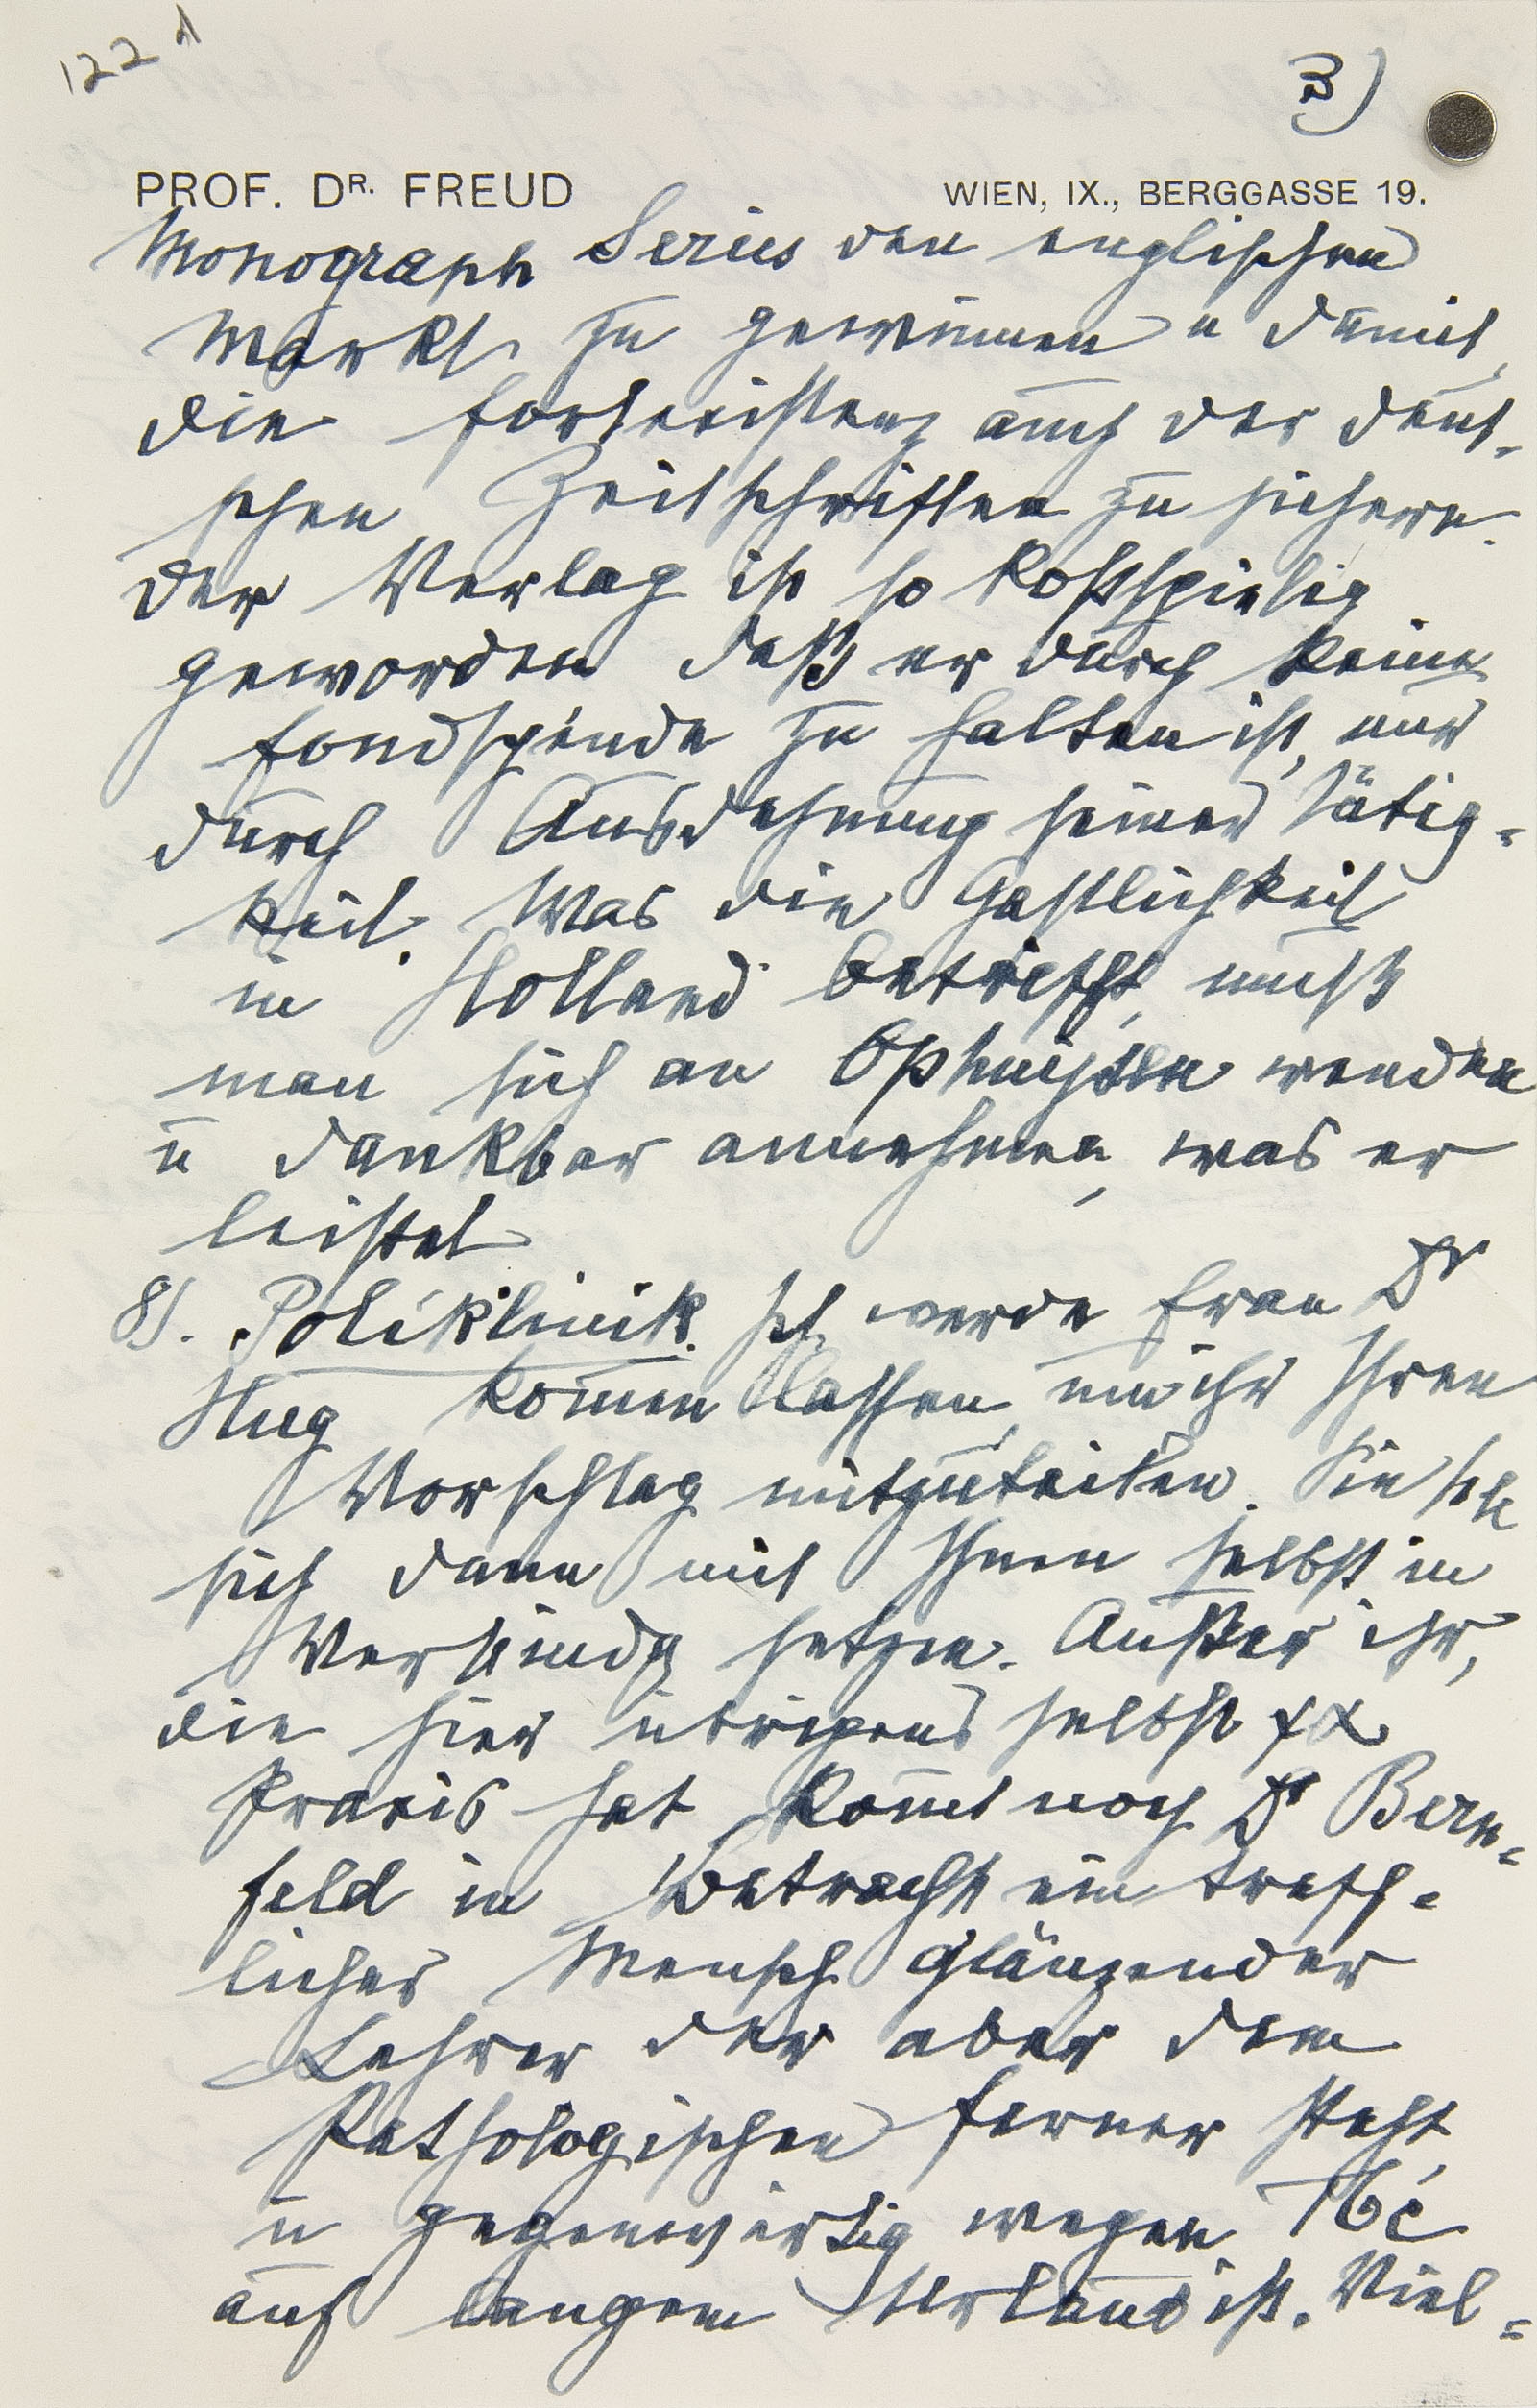 122 1
3)
PROF. DR. FREUD
WIEN, IX., BERGGASSE 19.
Monograph Series den englischen
Markt zu gewinnen u damit
die Fortexistenz auch der deut-
schen Zeitschriften zu sichern.
Der Verlag ist so kostspielig
geworden daß er durch keine
Fondspende zu halten ist, nur
durch Ausdehnung seiner Tätig-
keit. Was die Gastlichkeit
in Holland betrifft, muß
man sich an Ophuijsen wenden
u dankbar annehmen, was er
leistet
8). Poliklinik. Ich werde Frau Dr
Hug kommen lassen, um ihr Ihren
Vorschlag mitzuteilen. Sie soll
sich dann mit Ihnen selbst in
Verbindg setzen. Außer ihr,
die hier übrigens selbst ψα
Praxis hat, kommt noch Dr Bern-
feld in Betracht ein treff-
licher Mensch glänzender
Lehrer der aber dem
Pathologischen ferner steht,
u gegenwärtig wegen Tbc
auf langem Urlaub ist. Viel-